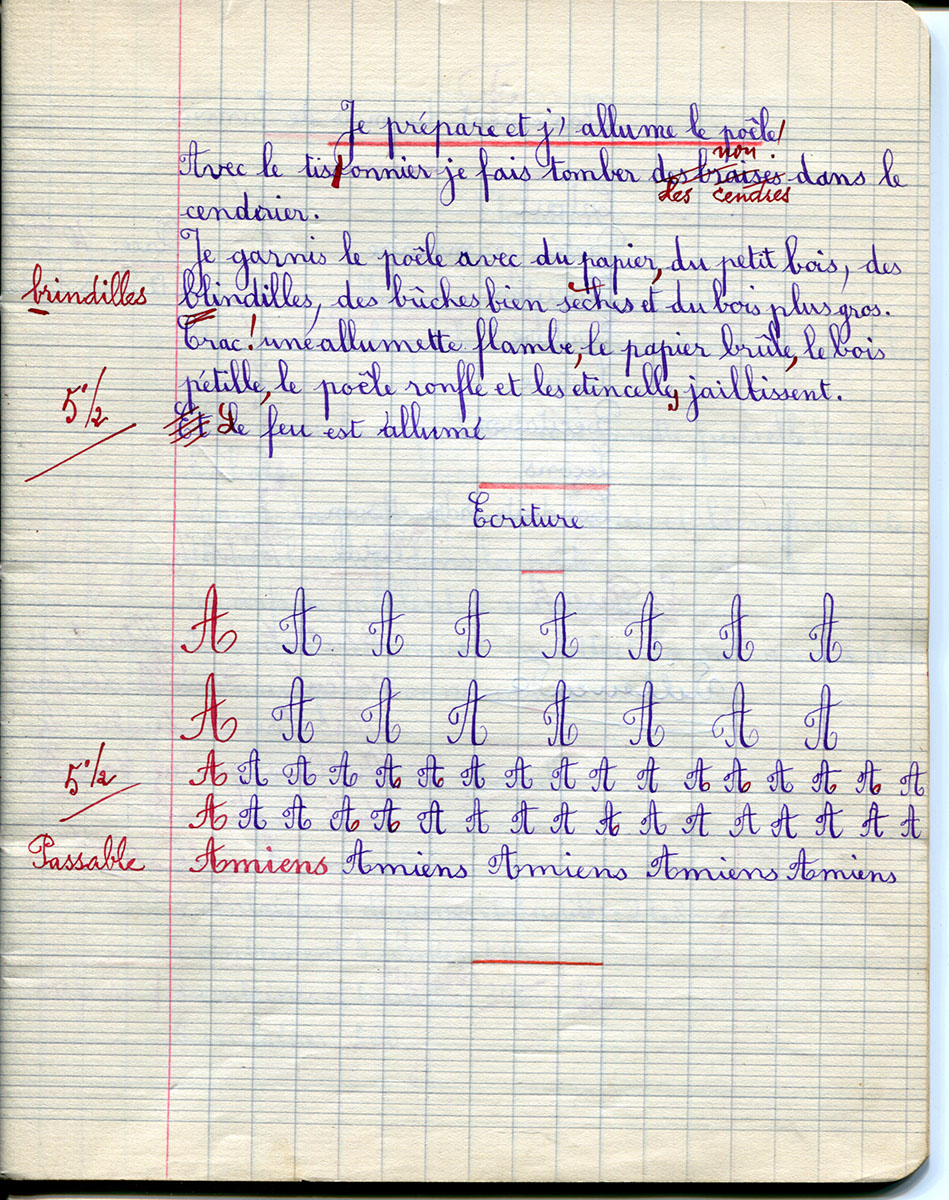 Je prépare et j'allume le poêle
non.
Avec le tisonnier je fais tomber des braises dans le
les cendres
cendrier.
Je garnis le poêle avec du papier, du petit bois, des
brindilles blindilles, des bûches bien sèches et du bois plus gros.
Crac! une allumette flambe, le papier brûle, le bois
pétille, le poêle ronfle et les étincelles jaillissent.
5 1/2
Et Le feu est allumé
Ecriture
A A A A A A A A
A A A A A A A A
5 1/2 A A A A A A A A A A A A A A A A A
A A A A A A A A A A A A A A A A A
Passable Amiens Amiens Amiens Amiens Amiens